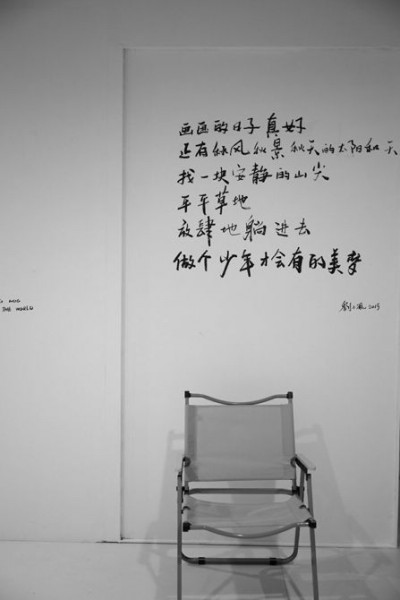 画画的日子真好
还有秋风秋景秋天的太阳和天
找一块安静的山尖
平平草地
放肆地躺进去
做个少年才会有的美梦
2015